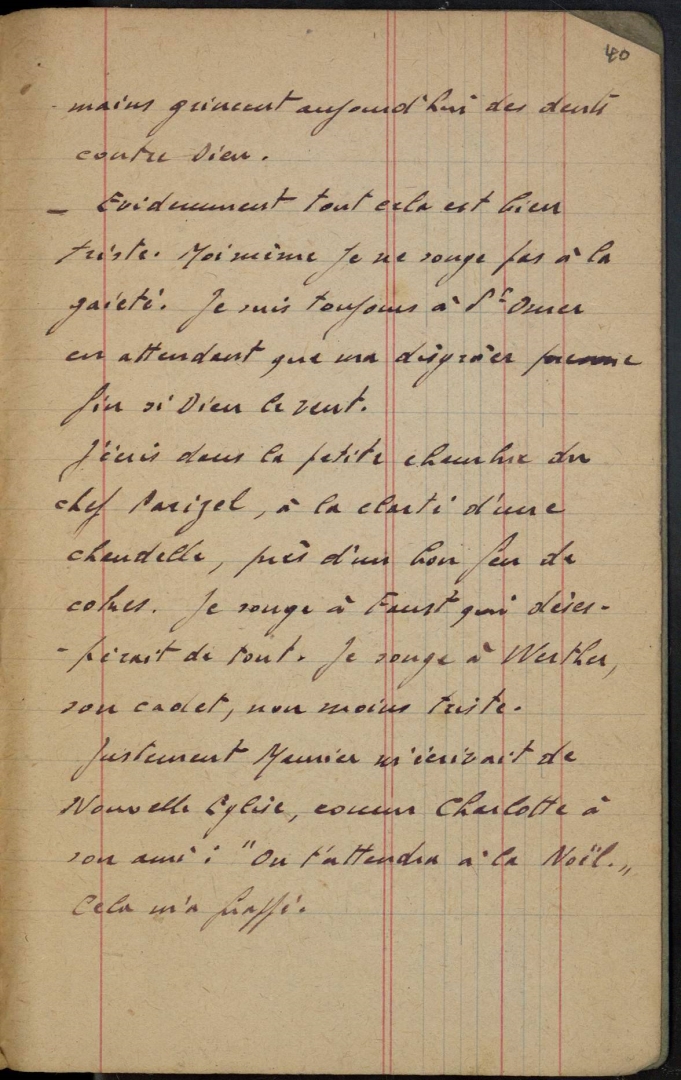 40
-mains grincent aujourd'hui des dents
contre Dieu.
— Evidemment tout cela est bien
triste. Moi même je ne songe pas à la
gaieté. Je suis toujours à St Omer
en attendant que ma disgrâce prenne
fin si Dieu le veut.
J'écris dans la petite chambre du
chef Parizel, à la clarté d'une
chandelle, près d'un bon feu de
cokes. Je songe à Faust qui déses-
-pérait de tout. Je songe à Werther,
son cadet, non moins triste.
Justement Meunier m'écrivait de
Nouvelle Eglise, comme Charlotte à
son ami : "On t'attendra à la Noël.„
Cela m'a frappé.